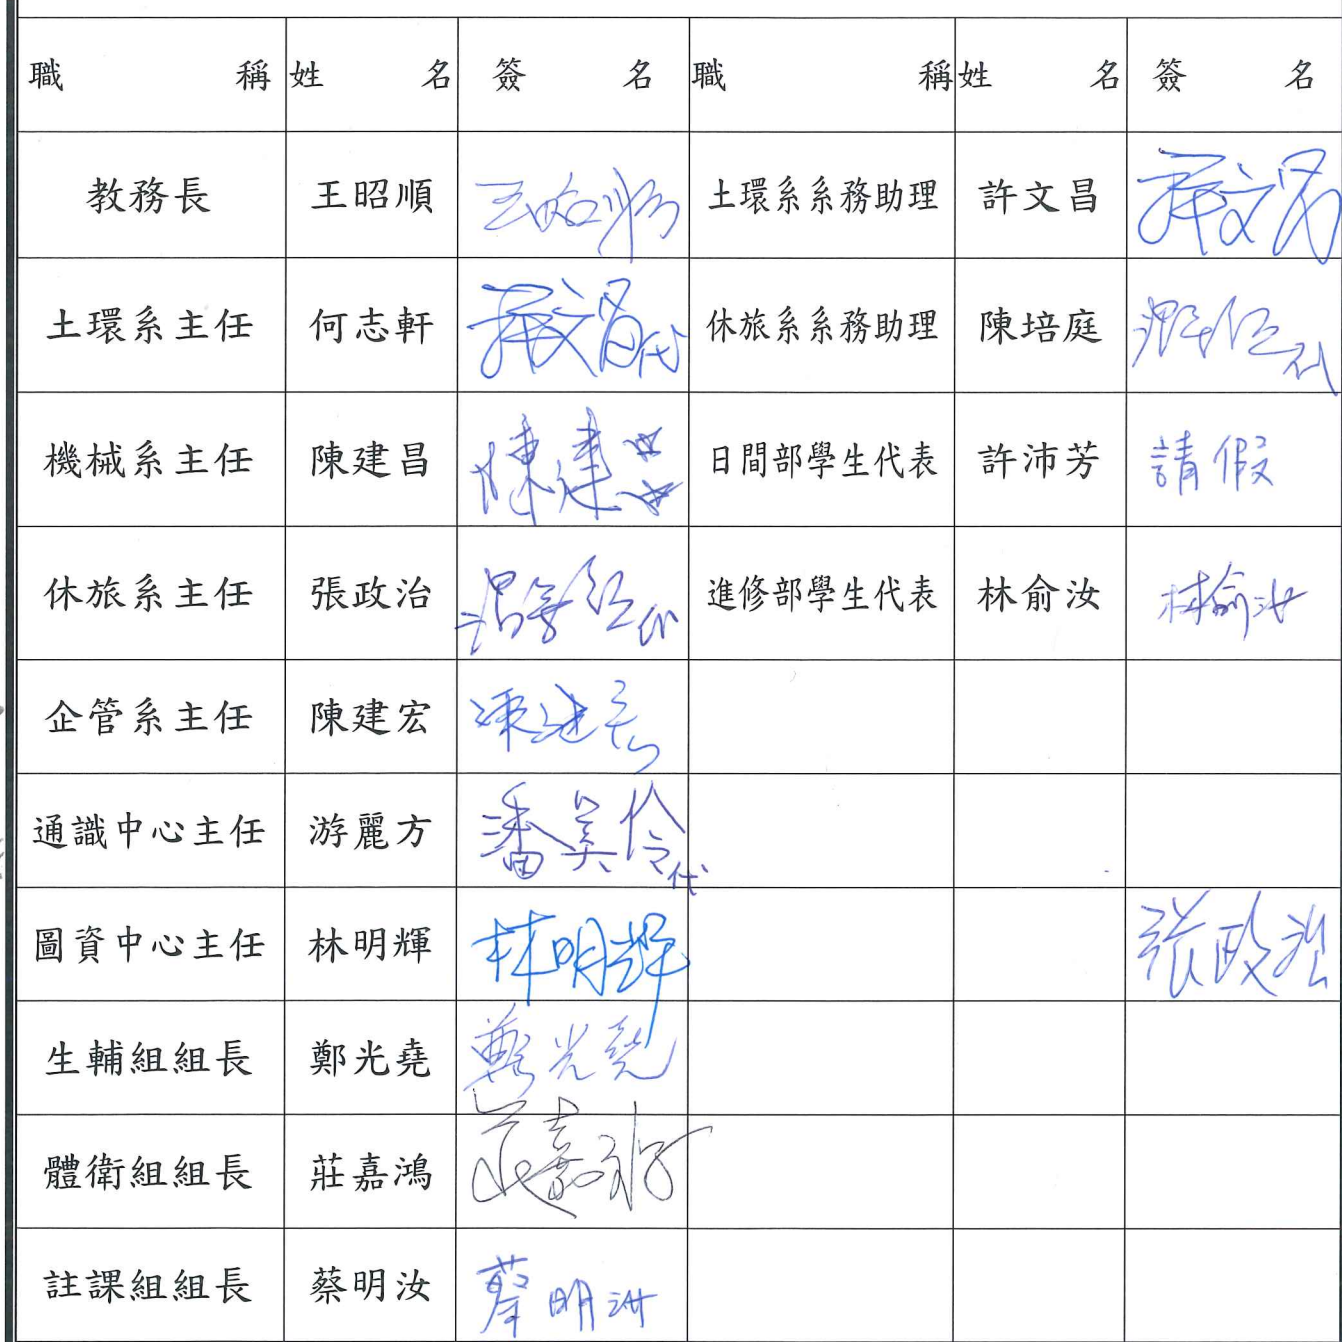 職稱 姓名 簽名 職稱 姓名 簽名
教務長 王昭順 王昭順 土環系系務助理 許文昌 許文昌
土環系主任 何志軒 許文昌代 休旅系系務助理 陳培庭 代
機械系主任 陳建昌 陳建昌 日間部學生代表 許沛芳 請假
休旅系主任 張政治 代 進修部學生代表 林俞汝 林俞汝
企管系主任 陳建宏 陳建宏
通識中心主任 游麗方 潘美伶代
圖資中心主任 林明輝 林明輝 張政治
生輔組組長 鄭光堯 鄭光堯
體衛組組長 莊嘉鴻 莊嘉鴻
註課組組長 蔡明汝 蔡明汝